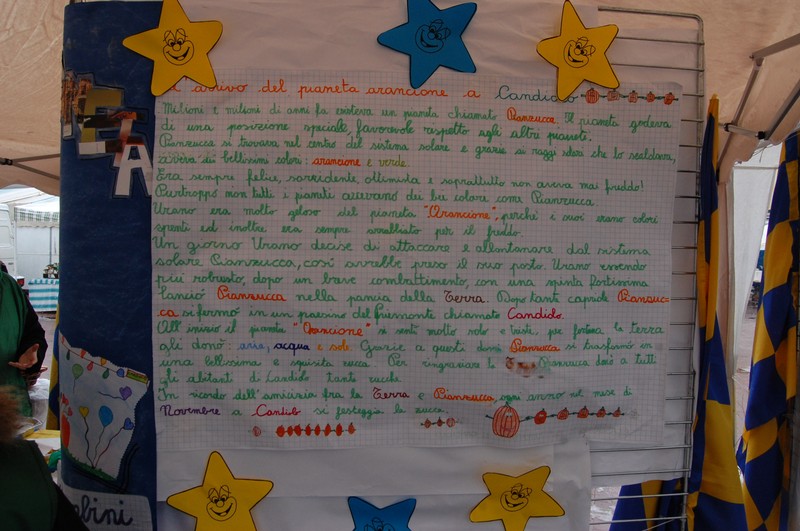 L'arrivo del pianeta arancione a Candiolo
Milioni e milioni di anni fa esisteva un pianeta chiamato Pianzucca. Il pianeta godeva
di una posizione speciale, favorevole rispetto agli altri pianeti.
Pianzucca si trovava nel centro del sistema solare e grazie ai raggi solari che lo scaldavano,
aveva dei bellissimi colori: arancione e verde.
Era sempre felice, sorridente, ottimista e soprattutto non aveva mai freddo!
Purtroppo non tutti i pianeti avevano dei bei colori come Pianzucca.
Urano era molto geloso del pianeta "Arancione", perché i suoi erano colori
spenti ed inoltre era sempre arrabbiato per il freddo.
Un giorno Urano decise di attaccare e allontanare dal sistema
solare Pianzucca, così avrebbe preso il suo posto. Urano essendo
più robusto, dopo un breve combattimento, con una spinta fortissima
lanciò Pianzucca nella pancia della Terra. Dopo tante capriole Pianzuc-
ca si fermò in un paesino del Piemonte chiamato Candiolo.
All'inizio il pianeta "Arancione" si sentì molto solo e triste, per fortuna la terra
gli donò: aria, acqua e sole. Grazie a questi doni Pianzucca si trasformò in
una bellissima e squisita zucca. Per ringraziare la Pianzucca donò a tutti
gli abitanti di Candiolo tante zucche.
In ricordo dell'amicizia fra la Terra e Pianzucca, ogni anno nel mese di
Novembre a Candiolo si festeggia la zucca.
bini